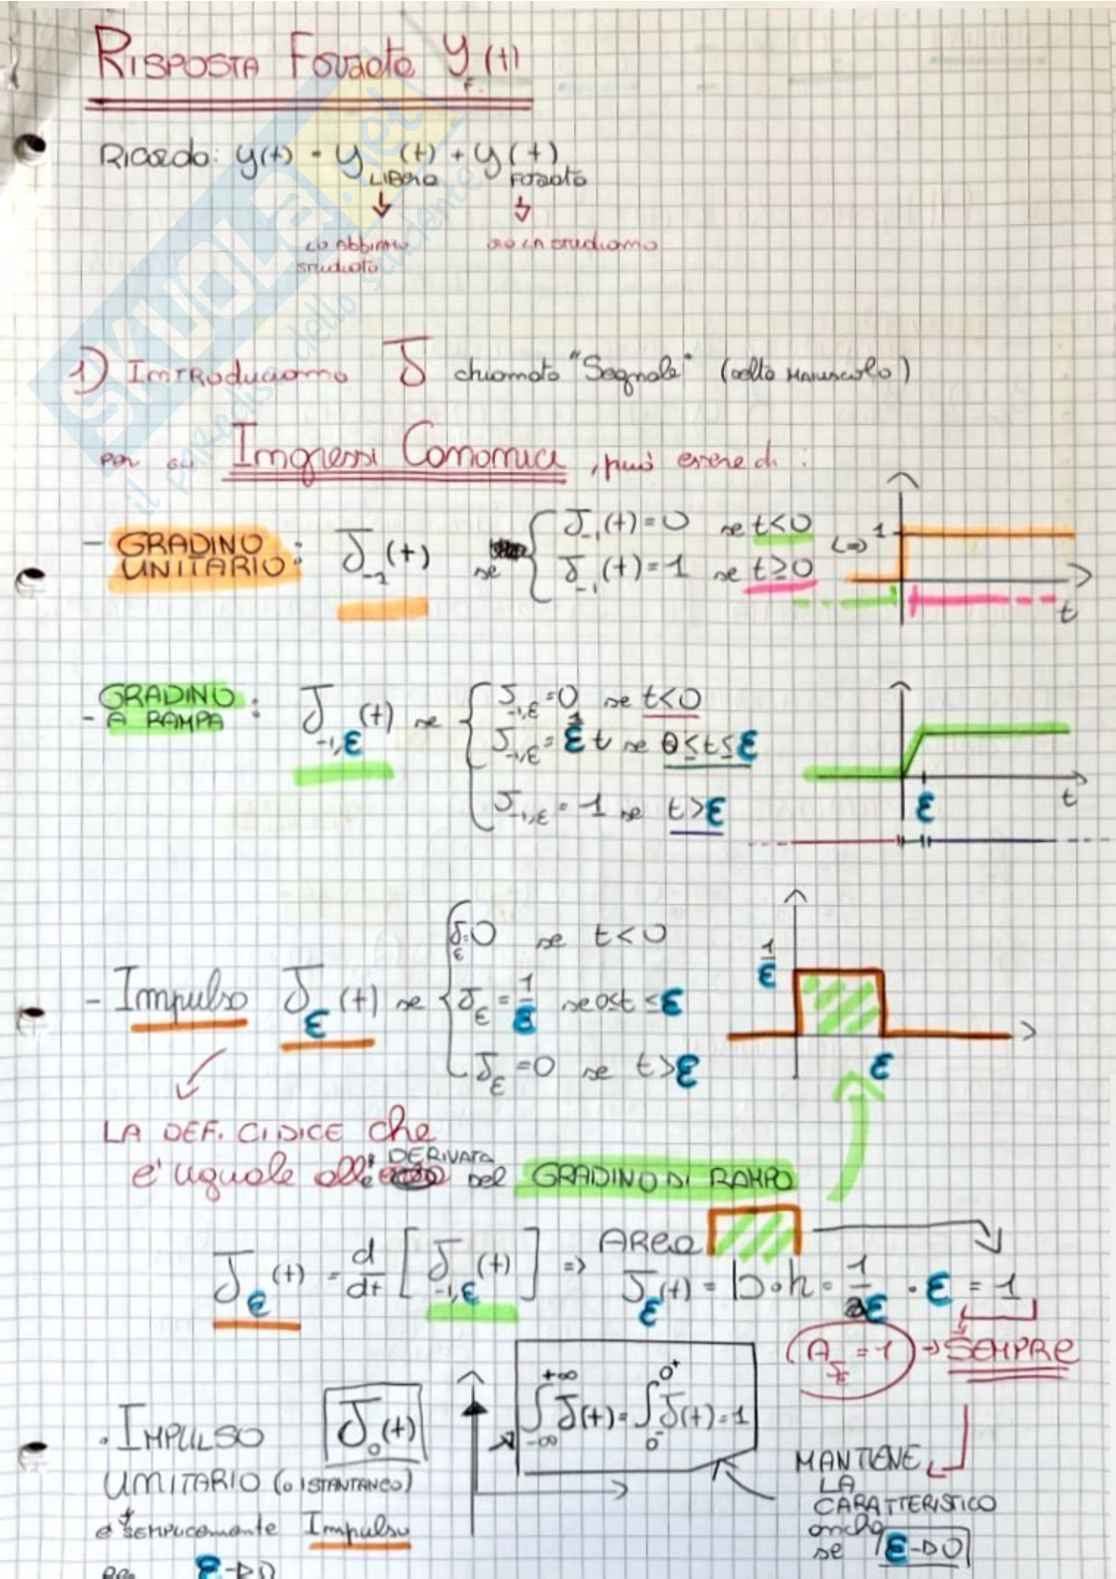 RISPOSTA Forzata y_F(t)
Ricorda: y(t) = y_LIBERA (t) + y_FORZATA (t)
LO ABBIAMO STUDIATO
ORA LA STUDIAMO
1) INTRODUCIAMO δ chiamato "Segnale" (delta Maiuscolo)
per gli Ingressi Canonici, può essere di:
- GRADINO UNITARIO: δ_-1(t) se { δ_-1(t)=0 se t<0
δ_-1(t)=1 se t≥0
<=> 1
t
- GRADINO A RAMPA: δ_-1,ε(t) se { δ_-1,ε=0 se t<0
δ_-1,ε = 1/ε t se 0≤t≤ε
δ_-1,ε = 1 se t>ε
ε t
- Impulso δ_ε(t) se { δ_ε=0 se t<0
δ_ε = 1/ε se 0≤t≤ε
δ_ε=0 se t>ε
1/ε
ε
LA DEF. CI DICE che
e' uguale all' DERIVATA del GRADINO DI RAMPA
δ_ε(t) = d/dt [δ_-1,ε(t)] => AREA δ_ε(t) = b·h = 1/ε · ε = 1
A_δ = 1 → SEMPRE
· IMPULSO UNITARIO (o ISTANTANEO) δ_0(t)
∫_-∞^+∞ δ(t) = ∫_0^-^0^+ δ(t) = 1
MANTIENE
LA
CARATTERISTICA
anche
se ε→0
è SEMPLICEMENTE Impulso
per ε→0
SKUOLA.net
il paradiso dello studente